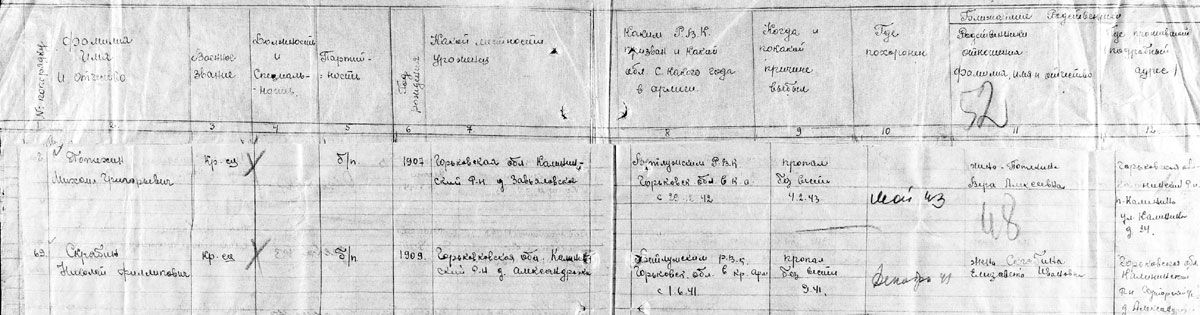 № по порядку
Фамилия
Имя
и отчество
Военное
звание
Должность
и
Специаль-
-ность
Партий-
-ность
Год
рождения
Какой местности
уроженец
Каким Р.В.К.
призван и какой
обл. с какого года
в армии
Когда и
по какой
причине
выбыл
Где
похоронен
Ближайшие Родственники
Родственники
отношения
фамилия, имя и отчество
Где проживают
подробный
адрес
52
2 3 4 5 6 7 8 9 10 11 12
Потехин
Михаил Григорьевич
Кр-ец
б/п
1907
Горьковская обл. Калинин-
ский р-н д. Завьяловско
Р.В.К.
Горьковск. обл. в К.а.
с 42
пропал
без вести
4.2.43
май 43
жена-Потехина
Вера Алексеевна
48
Горьковская об
Калининский р-н
п. Калинино
ул. Калинина
д 24.
63.
Скрябин
Николай Филлипович
Кр-ец
б/п
1909
Горьковская обл. Калинин-
ский р-н д. Александровка
Р.В.К.
Горьковск. обл. в кр. арм
с 1.6.41
пропал
без вести
9.41.
декабрь 41
жена Скрябина
Елизавета Ивановна
Горьковская обл
Калининский